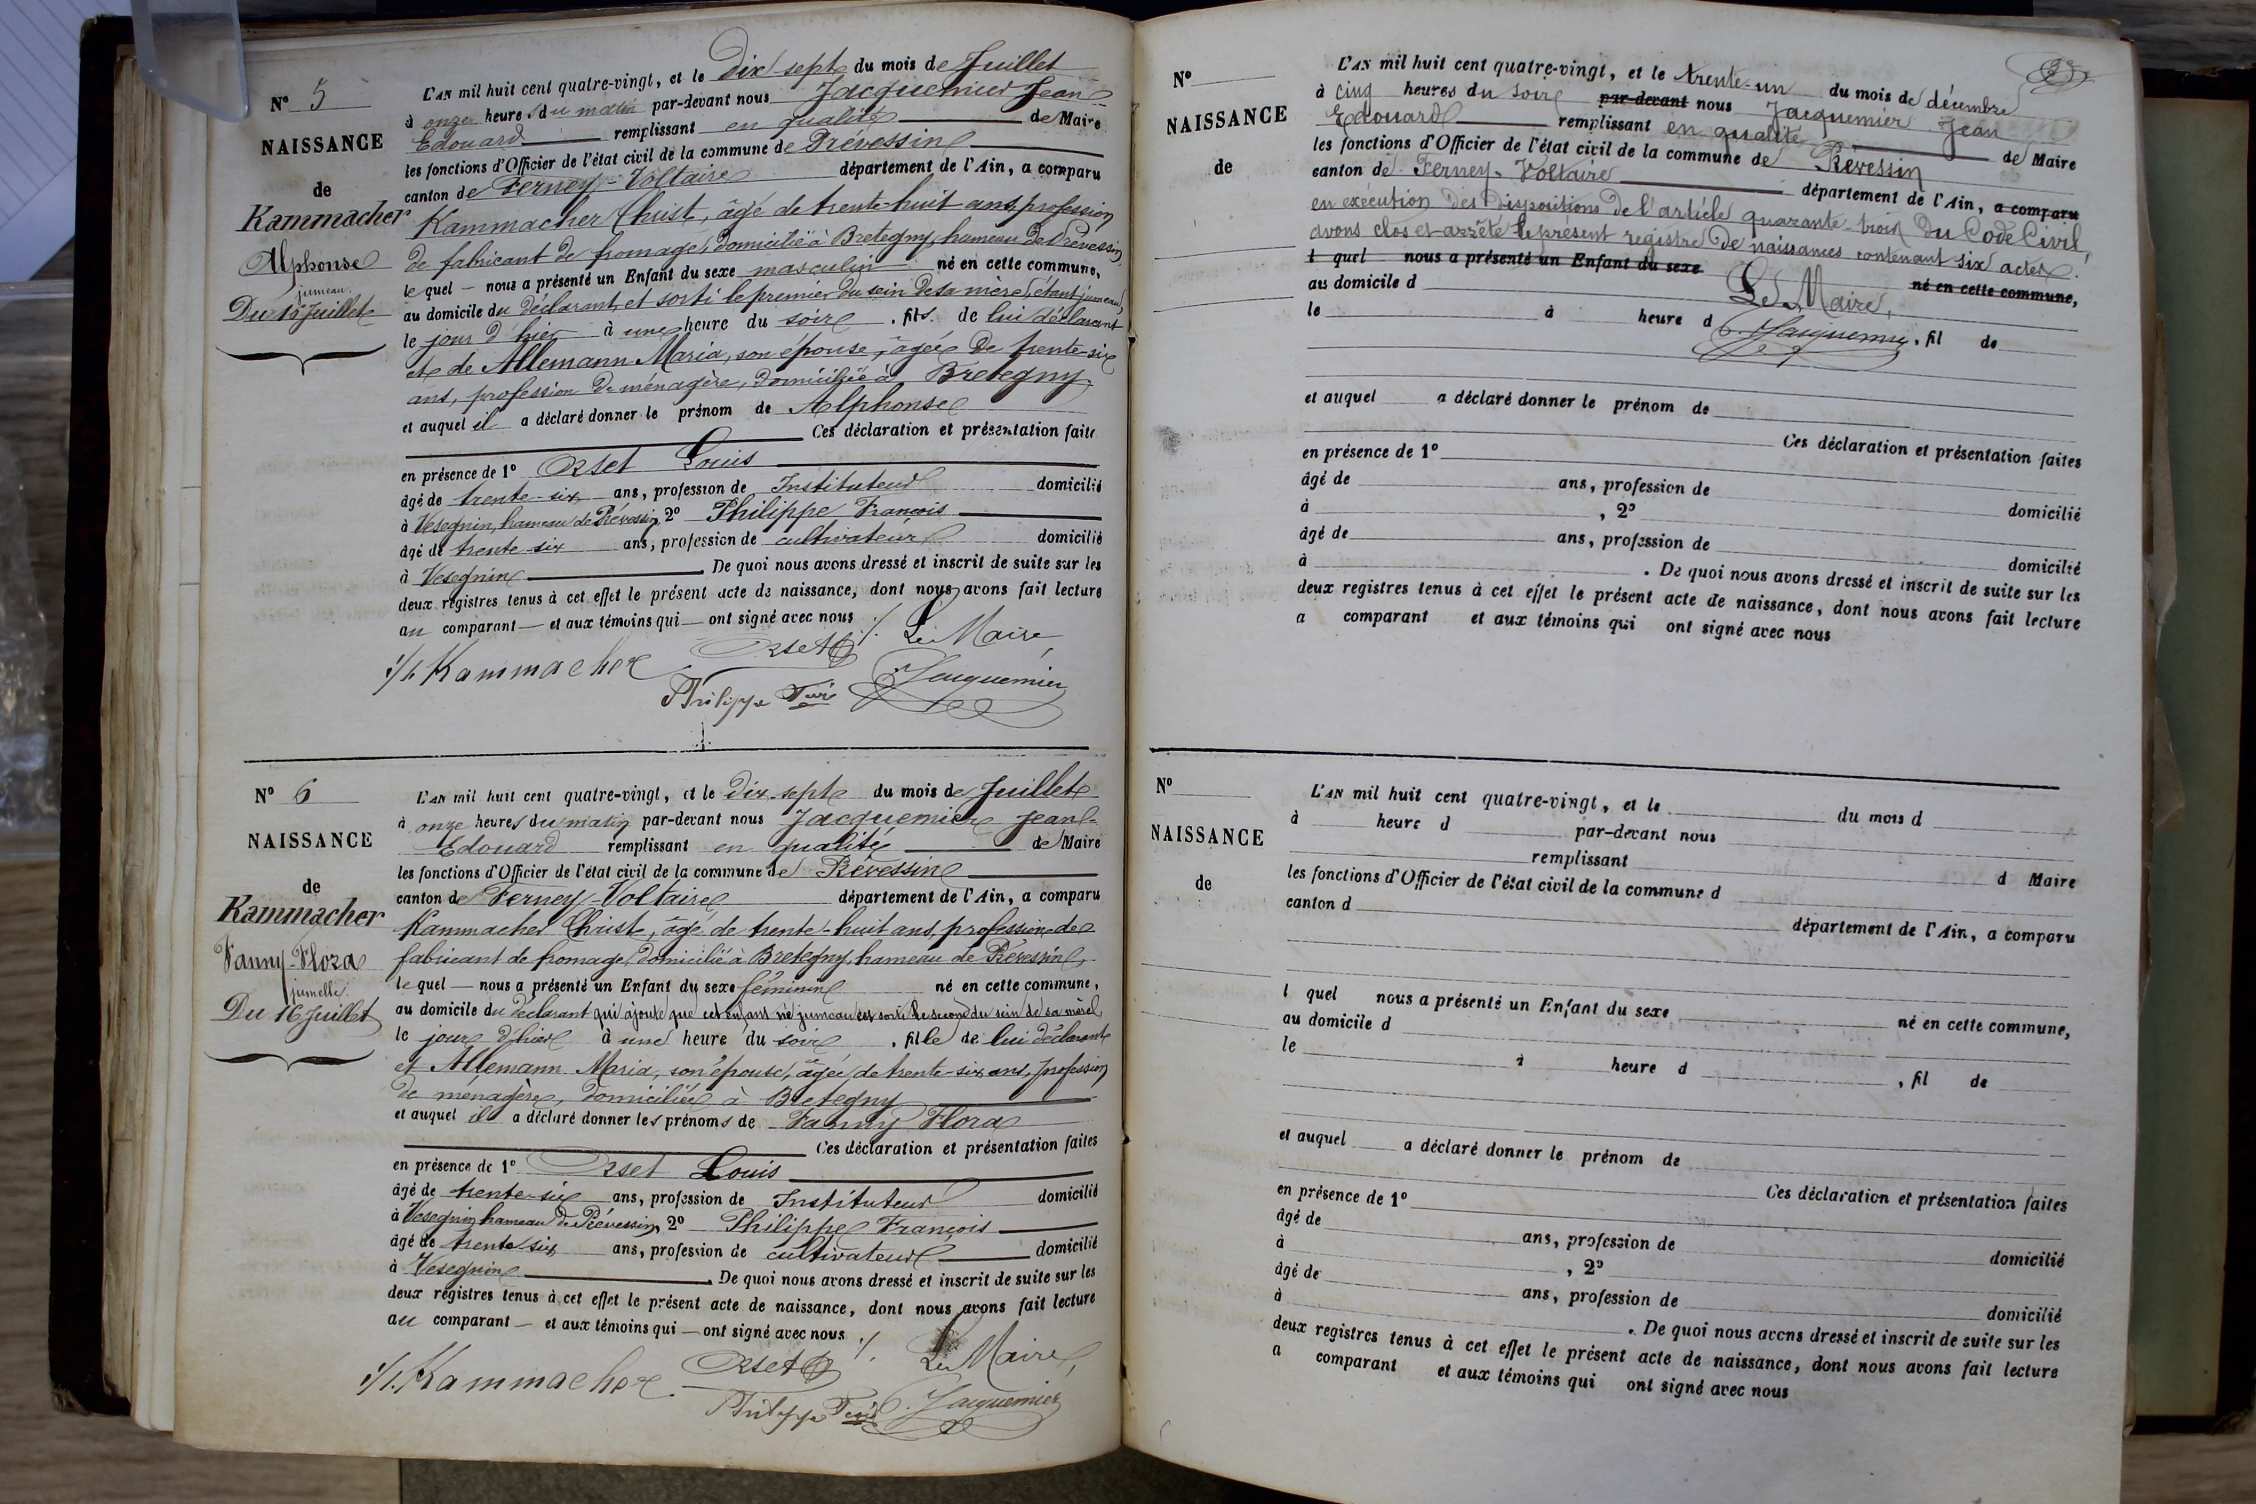 N° 5
NAISSANCE
de
Kammacher
Alphonse
jumeau
Du 16 Juillet
L'AN mil huit cent quatre-vingt, et le Dix sept du mois de Juillet
à onze heures du matin par-devant nous Jacquemier Jean
Edouard remplissant en qualité de Maire
les fonctions d'Officier de l'état civil de la commune de Prévessin
canton de Ferney-Voltaire département de l'Ain, a comparu
Kammacher Christ, âgé de trente-huit ans, profession
de fabricant de fromage, domicilié à Bretegny, hameau de Prévessin
le quel — nous a présenté un Enfant du sexe masculin né en cette commune,
au domicile du déclarant, et sorti le premier du sein de sa mère, étant jumeau,
le jour d'hier à une heure du soir, fils de lui déclarant
et de Allemann Maria, son épouse, âgée de trente-six
ans, profession de ménagère, domiciliée à Brétegny
et auquel il a déclaré donner le prénom de Alphonse
Ces déclaration et présentation faite
en présence de 1° Orset Louis
âgé de trente-six ans, profession de Instituteur domicilié
à Vesegnin, hameau de Prévessin, 2° Philippe François
âgé de trente six ans, profession de cultivateur domicilié
à Vesegnin. De quoi nous avons dressé et inscrit de suite sur les
deux registres tenus à cet effet le présent acte de naissance, dont nous avons fait lecture
au comparant — et aux témoins qui — ont signé avec nous ./.
Orset Le Maire,
./. Kammacher
Philippe Jacquemier
N° 6
NAISSANCE
de
Kammacher
Fanny-Flora
jumelle
Du 16 Juillet
L'AN mil huit cent quatre-vingt, et le dix-sept du mois de Juillet
à onze heures du matin par-devant nous Jacquemier Jean-
Edouard remplissant en qualité de Maire
les fonctions d'Officier de l'état civil de la commune de Prévessin
canton de Ferney-Voltaire département de l'Ain, a comparu
Kammacher Christ, âgé de trente-huit ans, profession de
fabricant de fromage, domicilié à Bretegny, hameau de Prévessin,
le quel — nous a présenté un Enfant du sexe féminin né en cette commune,
au domicile du déclarant qui ajoute que cet enfant né jumeau est sorti le second du sein de sa mère
le jour d'hier à une heure du soir, fille de lui déclarant
et Allemann Maria, son épouse, âgée de trente-six ans, profession
de ménagère, domiciliée à Bretegny
et auquel il a déclaré donner les prénoms de Fanny Flora
Ces déclaration et présentation faites
en présence de 1° Orset Louis
âgé de trente-six ans, profession de Instituteur domicilié
à Vesegnin hameau de Prévessin, 2° Philippe François
âgé de trente six ans, profession de cultivateur domicilié
à Vesegnin. De quoi nous avons dressé et inscrit de suite sur les
deux registres tenus à cet effet le présent acte de naissance, dont nous avons fait lecture
au comparant — et aux témoins qui — ont signé avec nous ./.
Orset Le Maire,
./. Kammacher
Philippe Jacquemier
N°
NAISSANCE
de
L'AN mil huit cent quatre-vingt, et le trente-un du mois de décembre
à cinq heures du soir par-devant nous Jacquemier Jean
Edouard remplissant en qualité de Maire
les fonctions d'Officier de l'état civil de la commune de Prévessin
canton de Ferney-Voltaire département de l'Ain, a comparu
en exécution des dispositions de l'article quarante-trois du Code Civil,
avons clos et arrêté le présent registre de naissances contenant six actes.
l quel nous a présenté un Enfant du sexe né en cette commune,
au domicile d Le Maire,
le à heure d Jacquemier, fil de
et auquel a déclaré donner le prénom de
Ces déclaration et présentation faites
en présence de 1°
âgé de ans, profession de domicilié
à , 2°
âgé de ans, profession de domicilié
à . De quoi nous avons dressé et inscrit de suite sur les
deux registres tenus à cet effet le présent acte de naissance, dont nous avons fait lecture
a comparant et aux témoins qui ont signé avec nous
N°
NAISSANCE
de
L'AN mil huit cent quatre-vingt, et le du mois d
à heure d par-devant nous
remplissant d Maire
les fonctions d'Officier de l'état civil de la commune d
canton d département de l'Ain, a comparu
l quel nous a présenté un Enfant du sexe né en cette commune,
au domicile d
le à heure d , fil de
et auquel a déclaré donner le prénom de
Ces déclaration et présentation faites
en présence de 1°
âgé de ans, profession de domicilié
à , 2°
âgé de ans, profession de domicilié
à . De quoi nous avons dressé et inscrit de suite sur les
deux registres tenus à cet effet le présent acte de naissance, dont nous avons fait lecture
a comparant et aux témoins qui ont signé avec nous